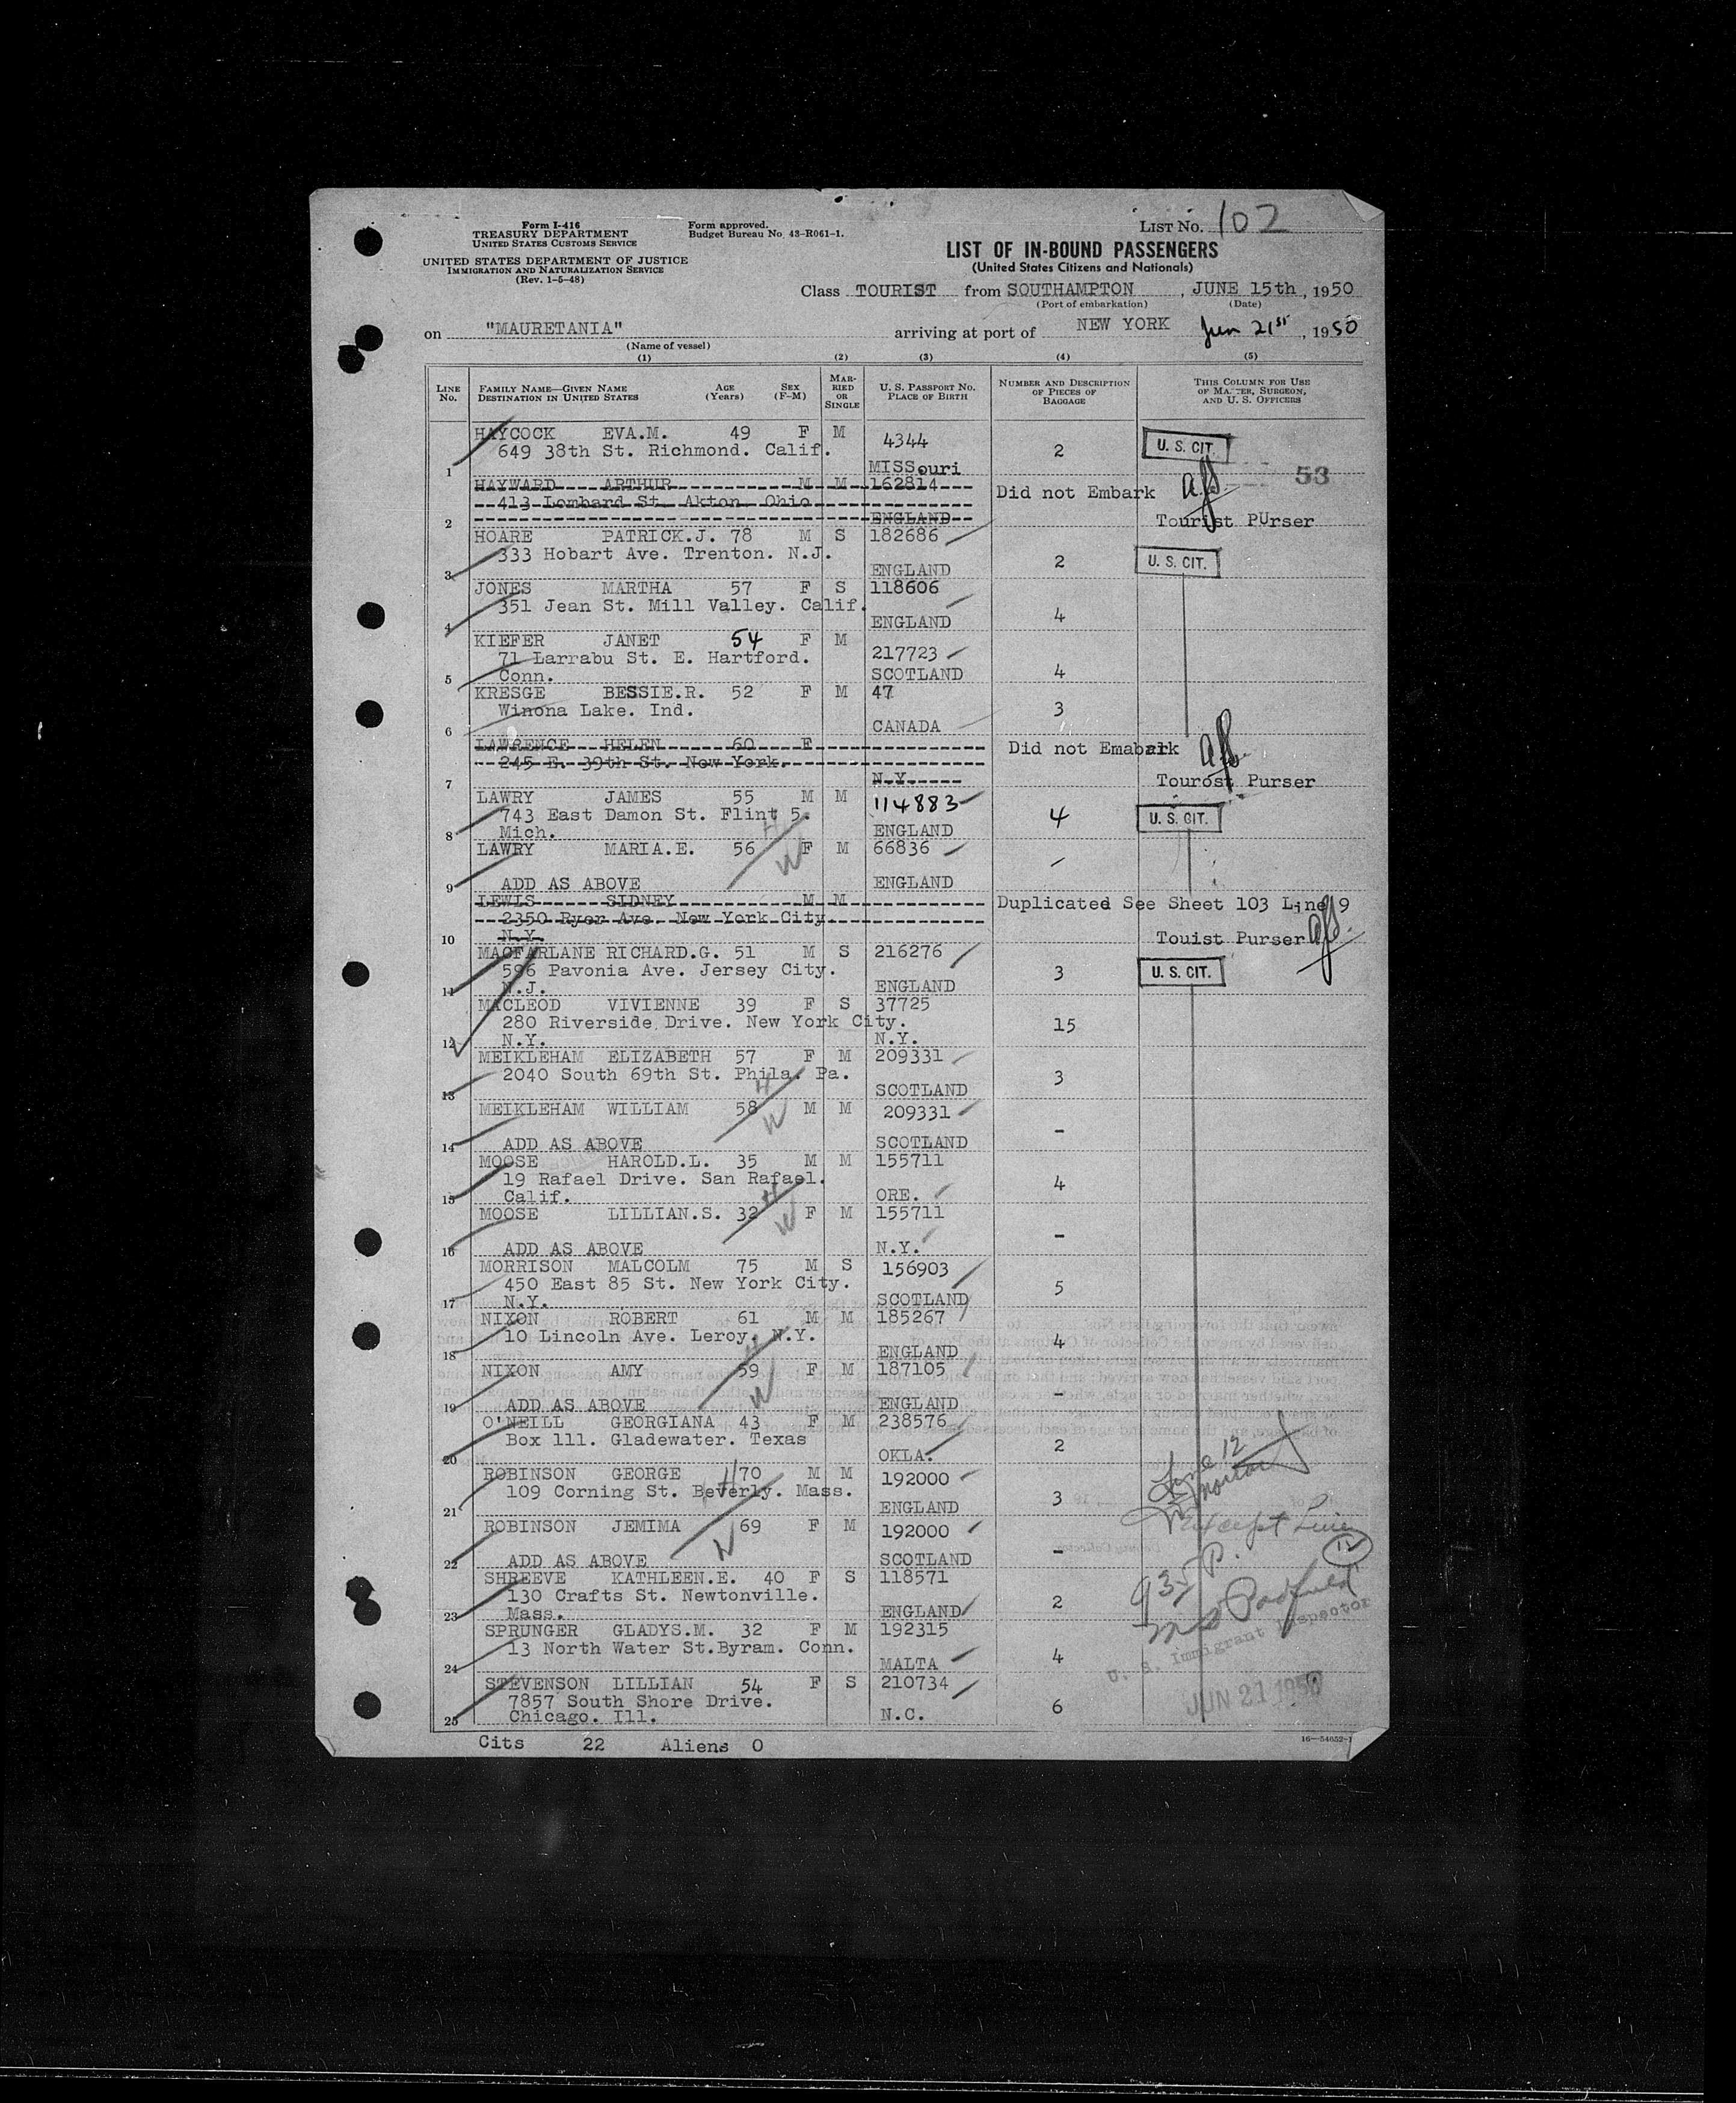 Form I-416
TREASURY DEPARTMENT
UNITED STATES CUSTOMS SERVICE
Form approved.
Budget Bureau No. 43-R061-1.
LIST No. 102
UNITED STATES DEPARTMENT OF JUSTICE
IMMIGRATION AND NATURALIZATION SERVICE
(Rev. 1-5-48)
LIST OF IN-BOUND PASSENGERS
(United States Citizens and Nationals)
Class TOURIST from SOUTHAMPTON, JUNE 15th, 1950
(Port of embarkation) (Date)
on "MAURETANIA" arriving at port of NEW YORK Jun 21st, 1950
(Name of vessel)
(1) (2) (3) (4) (5)
LINE No. FAMILY NAME—GIVEN NAME DESTINATION IN UNITED STATES AGE (Years) SEX (F-M) MARRIED OR SINGLE U. S. PASSPORT NO. PLACE OF BIRTH NUMBER AND DESCRIPTION OF PIECES OF BAGGAGE THIS COLUMN FOR USE OF MASTER, SURGEON, AND U. S. OFFICERS
HAYCOCK EVA.M. 49 F M 4344 U. S. CIT.
649 38th St. Richmond. Calif. 2
1 MISSouri 53
HAYWARD ARTHUR M M 162814 Did not Embark
413 Lombard St. Akton Ohio
2 ENGLAND Tourist PUrser
HOARE PATRICK.J. 78 M S 182686
333 Hobart Ave. Trenton. N.J. 2 U. S. CIT.
3 ENGLAND
JONES MARTHA 57 F S 118606
351 Jean St. Mill Valley. Calif. 4
4 ENGLAND
KIEFER JANET 54 F M 217723
71 Larrabu St. E. Hartford.
5 Conn. SCOTLAND 4
KRESGE BESSIE.R. 52 F M 47
Winona Lake. Ind. 3
6 CANADA
LAWRENCE HELEN 60 F Did not Emabark
245 E. 39th St. New York.
7 N.Y. Tourost Purser
LAWRY JAMES 55 M M 114883
743 East Damon St. Flint 5. 4 U. S. CIT.
8 Mich. ENGLAND
LAWRY MARIA.E. 56 F M 66836
9 ADD AS ABOVE ENGLAND
LEWIS SIDNEY M M Duplicated See Sheet 103 Line 9
2350 Ryer Ave. New York City.
10 N.Y. Touist Purser
MACFARLANE RICHARD.G. 51 M S 216276
596 Pavonia Ave. Jersey City. 3 U. S. CIT.
11 N.J. ENGLAND
MACLEOD VIVIENNE 39 F S 37725
280 Riverside Drive. New York City. 15
12 N.Y. N.Y.
MEIKLEHAM ELIZABETH 57 F M 209331
2040 South 69th St. Phila. Pa. 3
13 SCOTLAND
MEIKLEHAM WILLIAM 58 M M 209331 -
14 ADD AS ABOVE SCOTLAND
MOOSE HAROLD.L. 35 M M 155711
19 Rafael Drive. San Rafael. 4
15 Calif. ORE.
MOOSE LILLIAN.S. 32 F M 155711 -
16 ADD AS ABOVE N.Y.
MORRISON MALCOLM 75 M S 156903
450 East 85 St. New York City. 5
17 N.Y. SCOTLAND
NIXON ROBERT 61 M M 185267
10 Lincoln Ave. Leroy. N.Y. 4
18 ENGLAND
NIXON AMY 59 F M 187105 -
19 ADD AS ABOVE ENGLAND
O'NEILL GEORGIANA 43 F M 238576
Box 111. Gladewater. Texas 2
20 OKLA.
ROBINSON GEORGE 70 M M 192000
109 Corning St. Beverly. Mass. 3
21 ENGLAND
ROBINSON JEMIMA 69 F M 192000
22 ADD AS ABOVE SCOTLAND -
SHREEVE KATHLEEN.E. 40 F S 118571
130 Crafts St. Newtonville. 2
23 Mass. ENGLAND
SPRUNGER GLADYS.M. 32 F M 192315
13 North Water St.Byram. Conn. 4
24 MALTA
STEVENSON LILLIAN 54 F S 210734
7857 South Shore Drive. 6
25 Chicago. Ill. N.C.
Line 12
except Line 12
U. S. Immigrant Inspector
JUN 21 1950
Cits 22 Aliens 0
16—54052-1